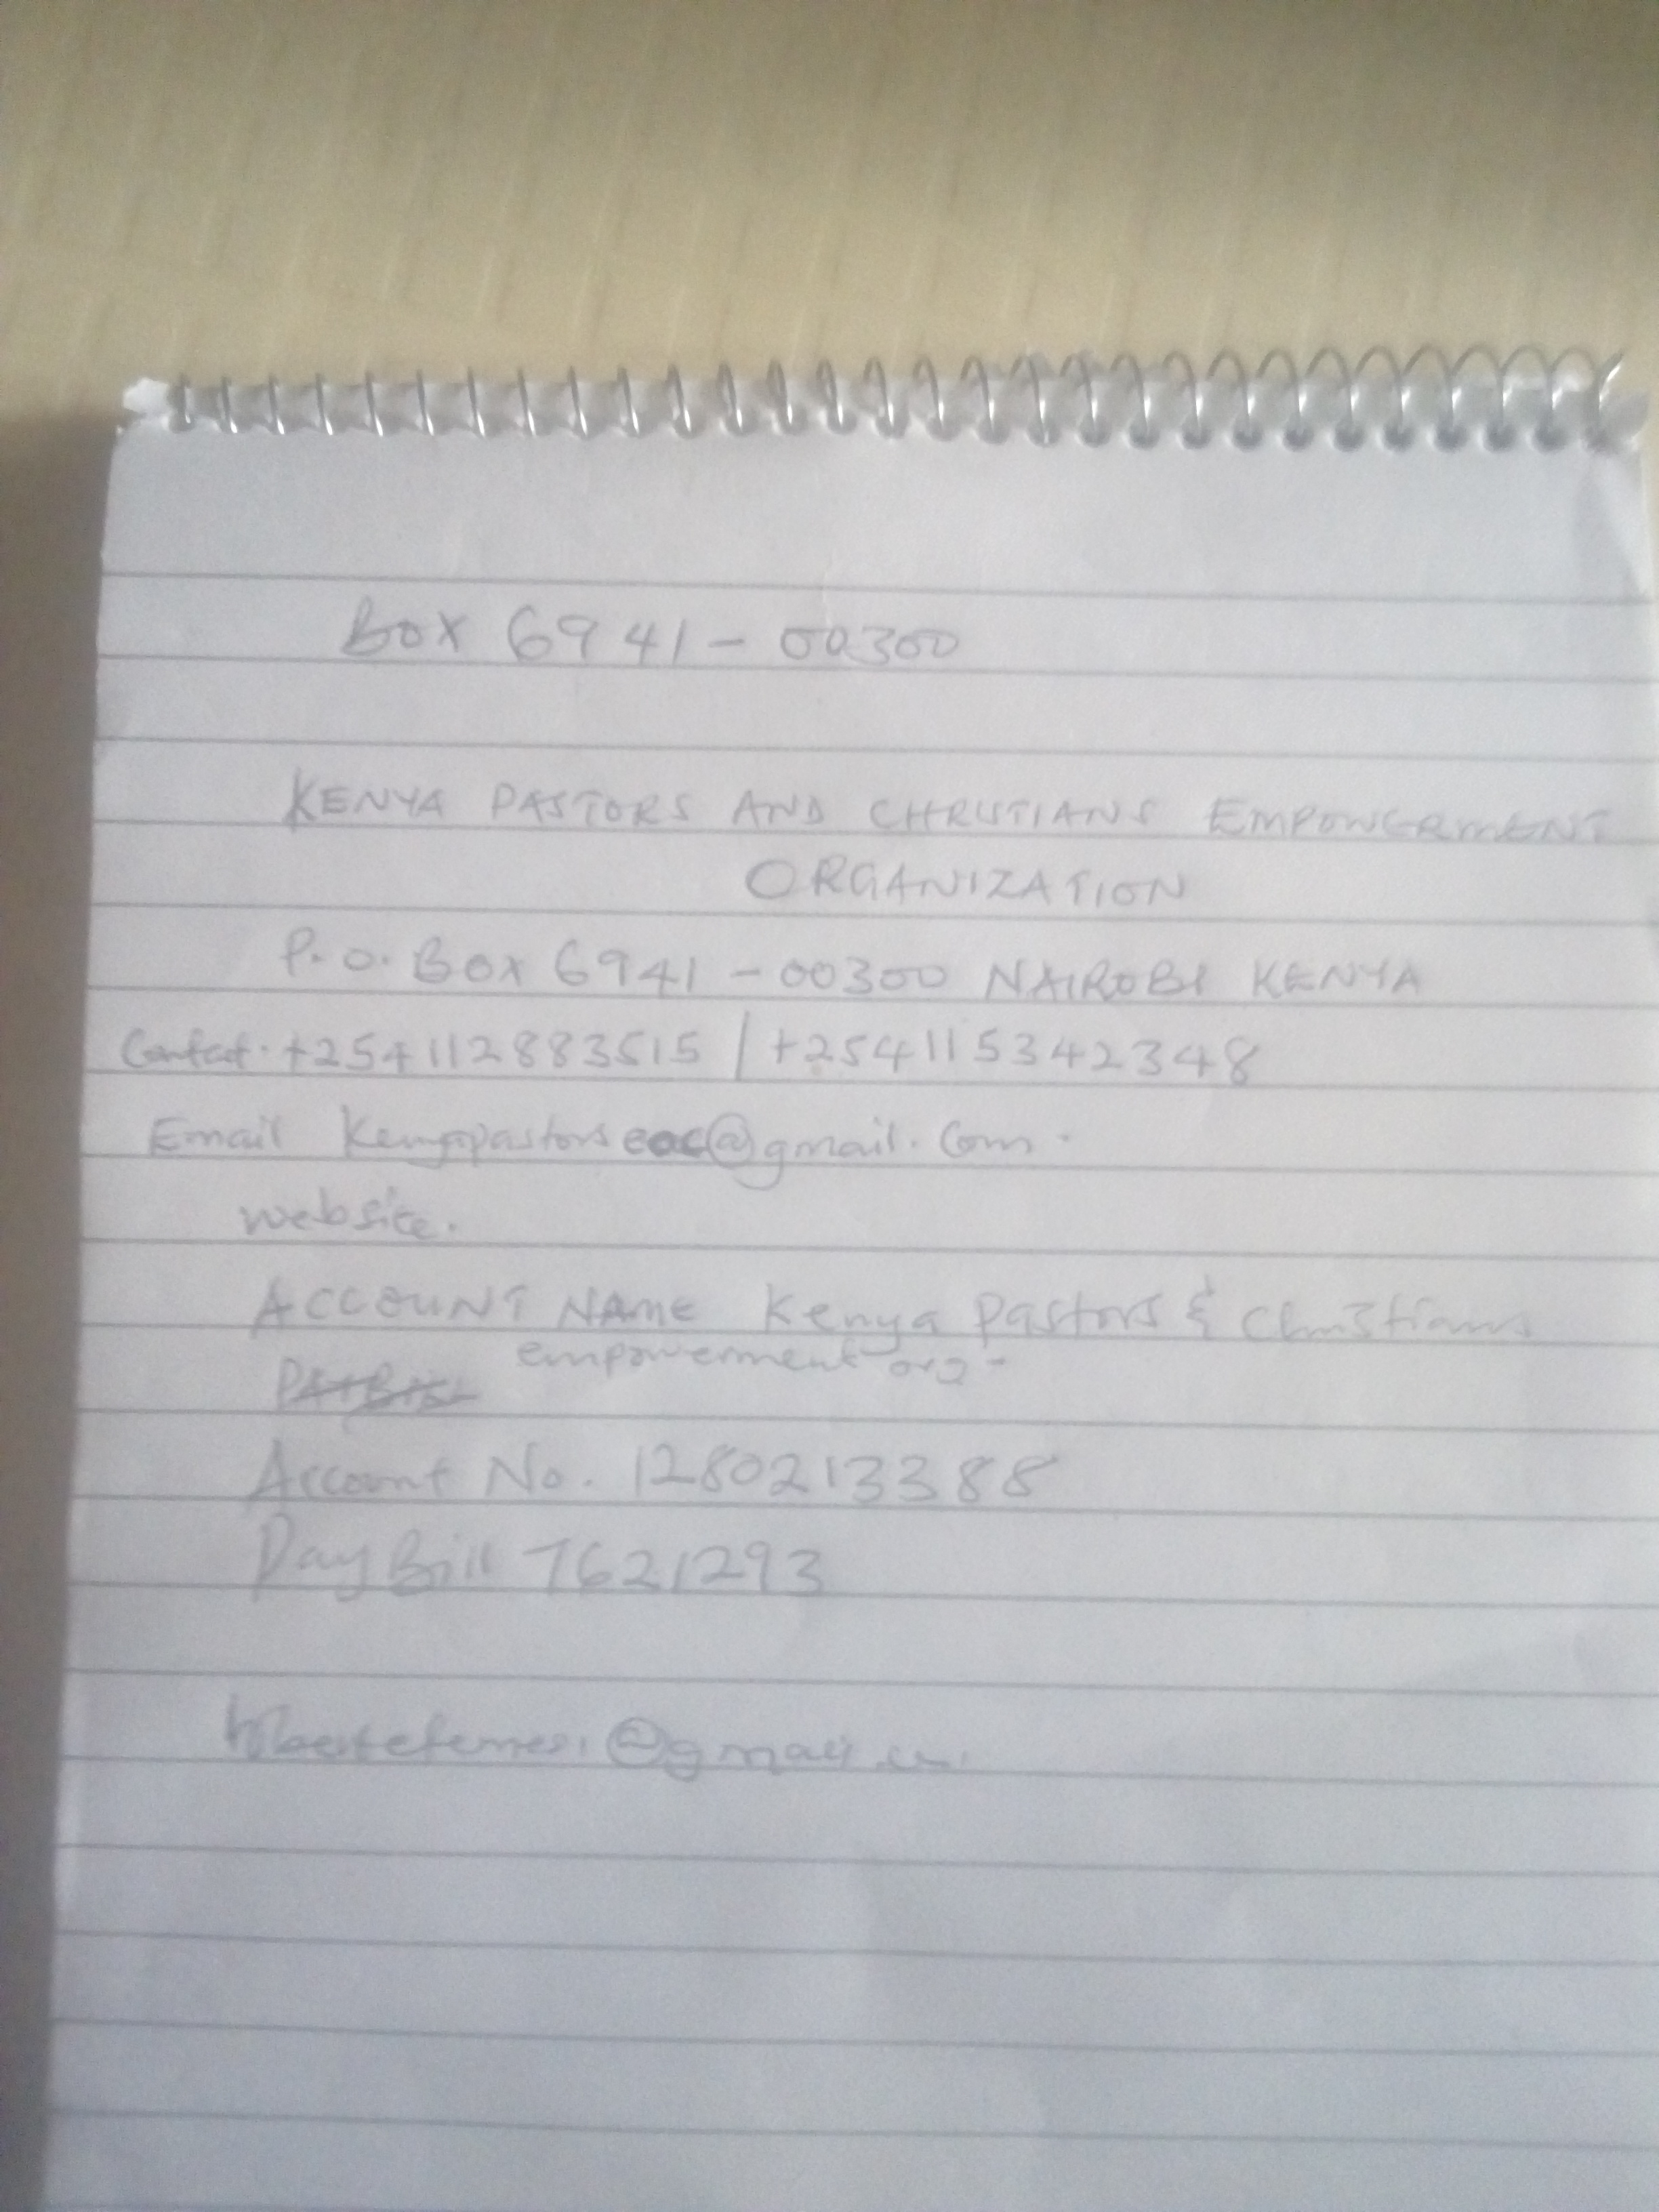 Box 6941-00300
KENYA PASTORS AND CHRISTIANS EMPOWERMENT
ORGANIZATION
P.O. Box 6941-00300 NAIROBI KENYA
Contact. +254112883515 | +254115342348
Email @gmail.com.
website.
ACCOUNT NAME Kenya Pastors & Christians
empowerment org-
Account No. 1280213388
PayBill 7621293